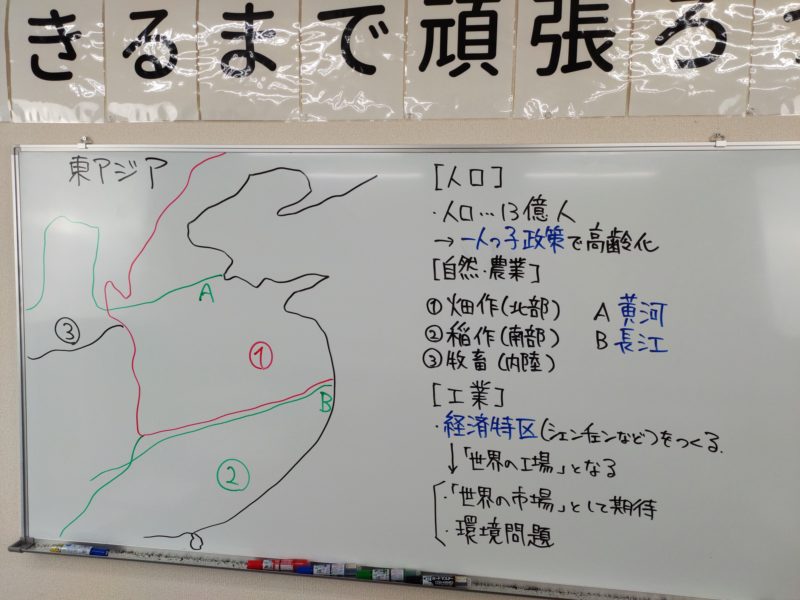 きるまで頑張ろ
東アジア
A
③
①
B
②
[人口]
・人口…13億人
→一人っ子政策で高齢化
[自然・農業]
①畑作(北部) A 黄河
②稲作(南部) B 長江
③牧畜(内陸)
[工業]
・経済特区(シェンチェンなど)をつくる.
↓「世界の工場」となる
・「世界の市場」として期待
・環境問題